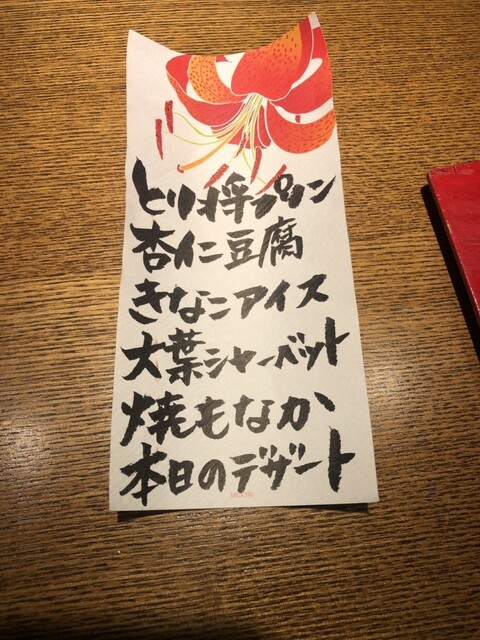 とりオ将プリン
杏仁豆腐
きなこアイス
大葉シャーベット
焼もなか
本日のデザート
MIDORI